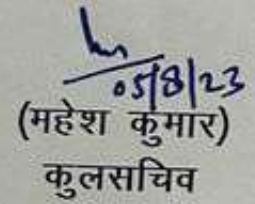 05/8/23
(महेश कुमार)
कुलसचिव